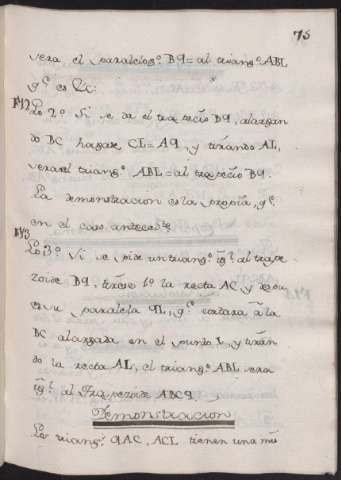 75
sera el paralelogº BQ = al triangº ABL
q.e es &c.
F.12 Lo 2º Si se da el trapecio BQ, alargan
do BC hagase CL = AQ, y tirando AL,
sera el triangº ABL = al trapecio BQ.
La demonstracion es la propia, q.e
en el caso antecedte
F.13 Lo 3º Si se pide un triangº igl al trape
zoide BQ, tirese 1º la recta AC y
su paralela QL, q.e cortara à la
BC alargada en el punto L, y tiran
do la recta AL, el triangº ABL sera
igl al Trapezoide ABCQ.
Demonstracion
Los triangs QAC, ACL tienen una mis